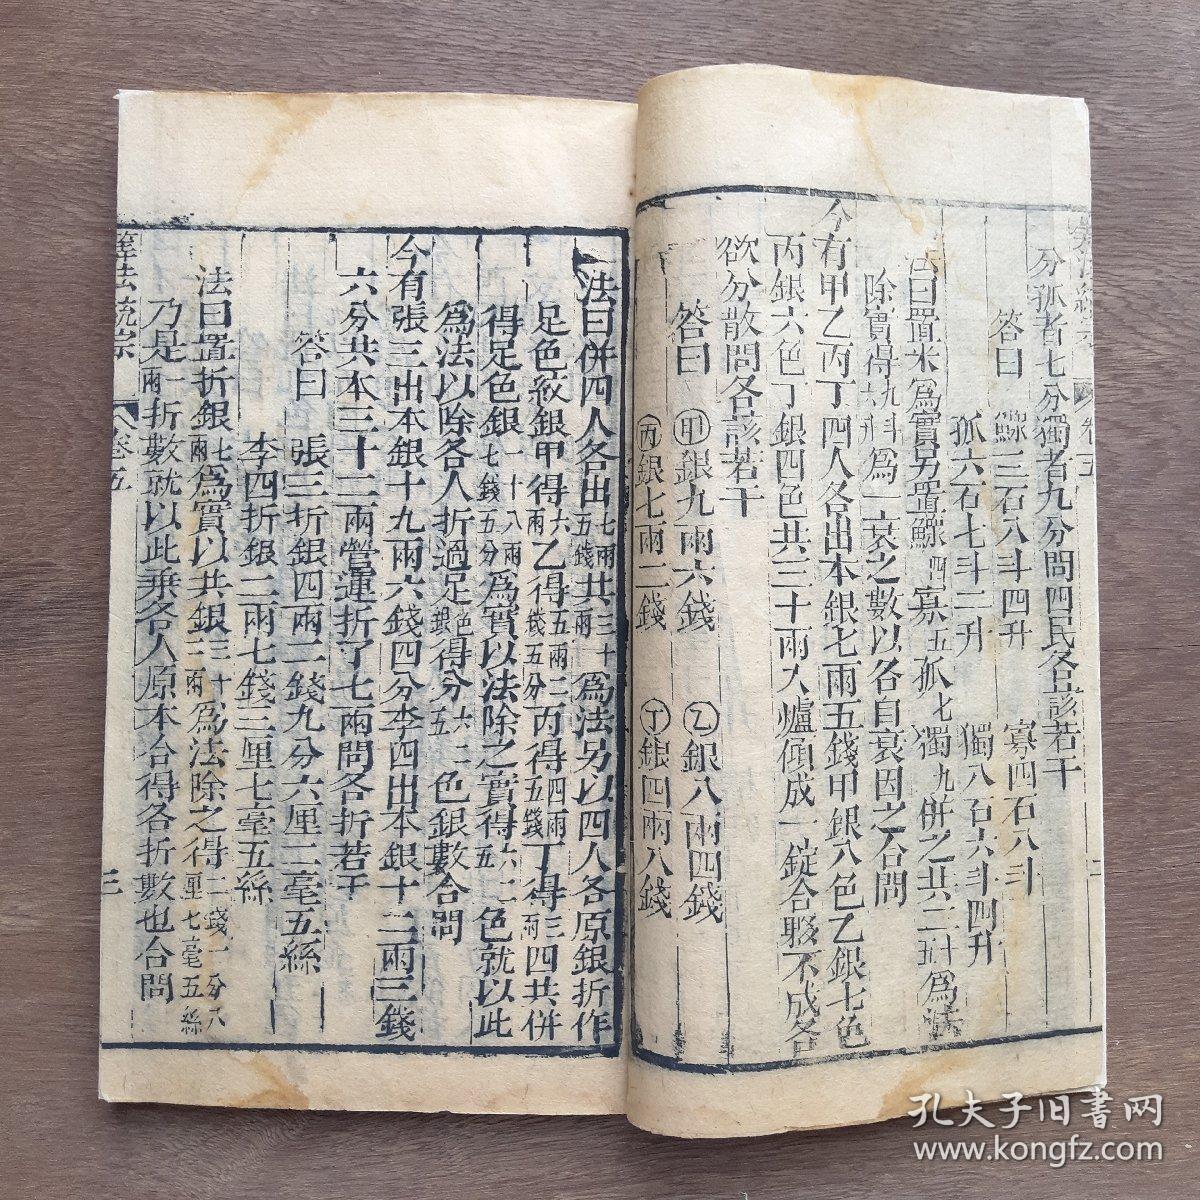 算法統宗 卷五 二
分孤者七分獨者九分問四民各該若干
答曰 鰥三石八斗四升 寡四石八斗
孤六石七斗二升 獨八石六斗四升
法曰置米為實另置鰥四寡五孤七獨九併之共二十五為法
除實得九斗六升為一衰之數以各自衰因之合問
今有甲乙丙丁四人各出本銀七兩五錢甲銀八色乙銀七色
丙銀六色丁銀四色共三十兩入爐傾成一錠合夥不成各
欲分散問各該若干
答曰 甲銀九兩六錢 乙銀八兩四錢
丙銀七兩二錢 丁銀四兩八錢
法曰併四人各出七兩五錢共三十兩為法另以四人各原銀折作
足色紋銀甲得六兩乙得五兩二錢五分丙得四兩五錢丁得三兩四共併
得足色銀一十八兩七錢五分為實以法除之實得六二五色就以此
為法以除各人折過足色銀得分六二五色銀數合問
今有張三出本銀十九兩六錢四分李四出本銀十二兩三錢
六分共本三十二兩營運折了七兩問各折若干
答曰 張三折銀四兩二錢九分六厘二毫五絲
李四折銀二兩七錢三厘七毫五絲
法曰置折銀七兩為實以共銀三十二兩為法除之得二錢一分八厘七毫五絲
乃是一兩折數就以此乘各人原本合得各折數也合問
算法統宗 卷五 三
孔夫子旧書网
www.kongfz.com